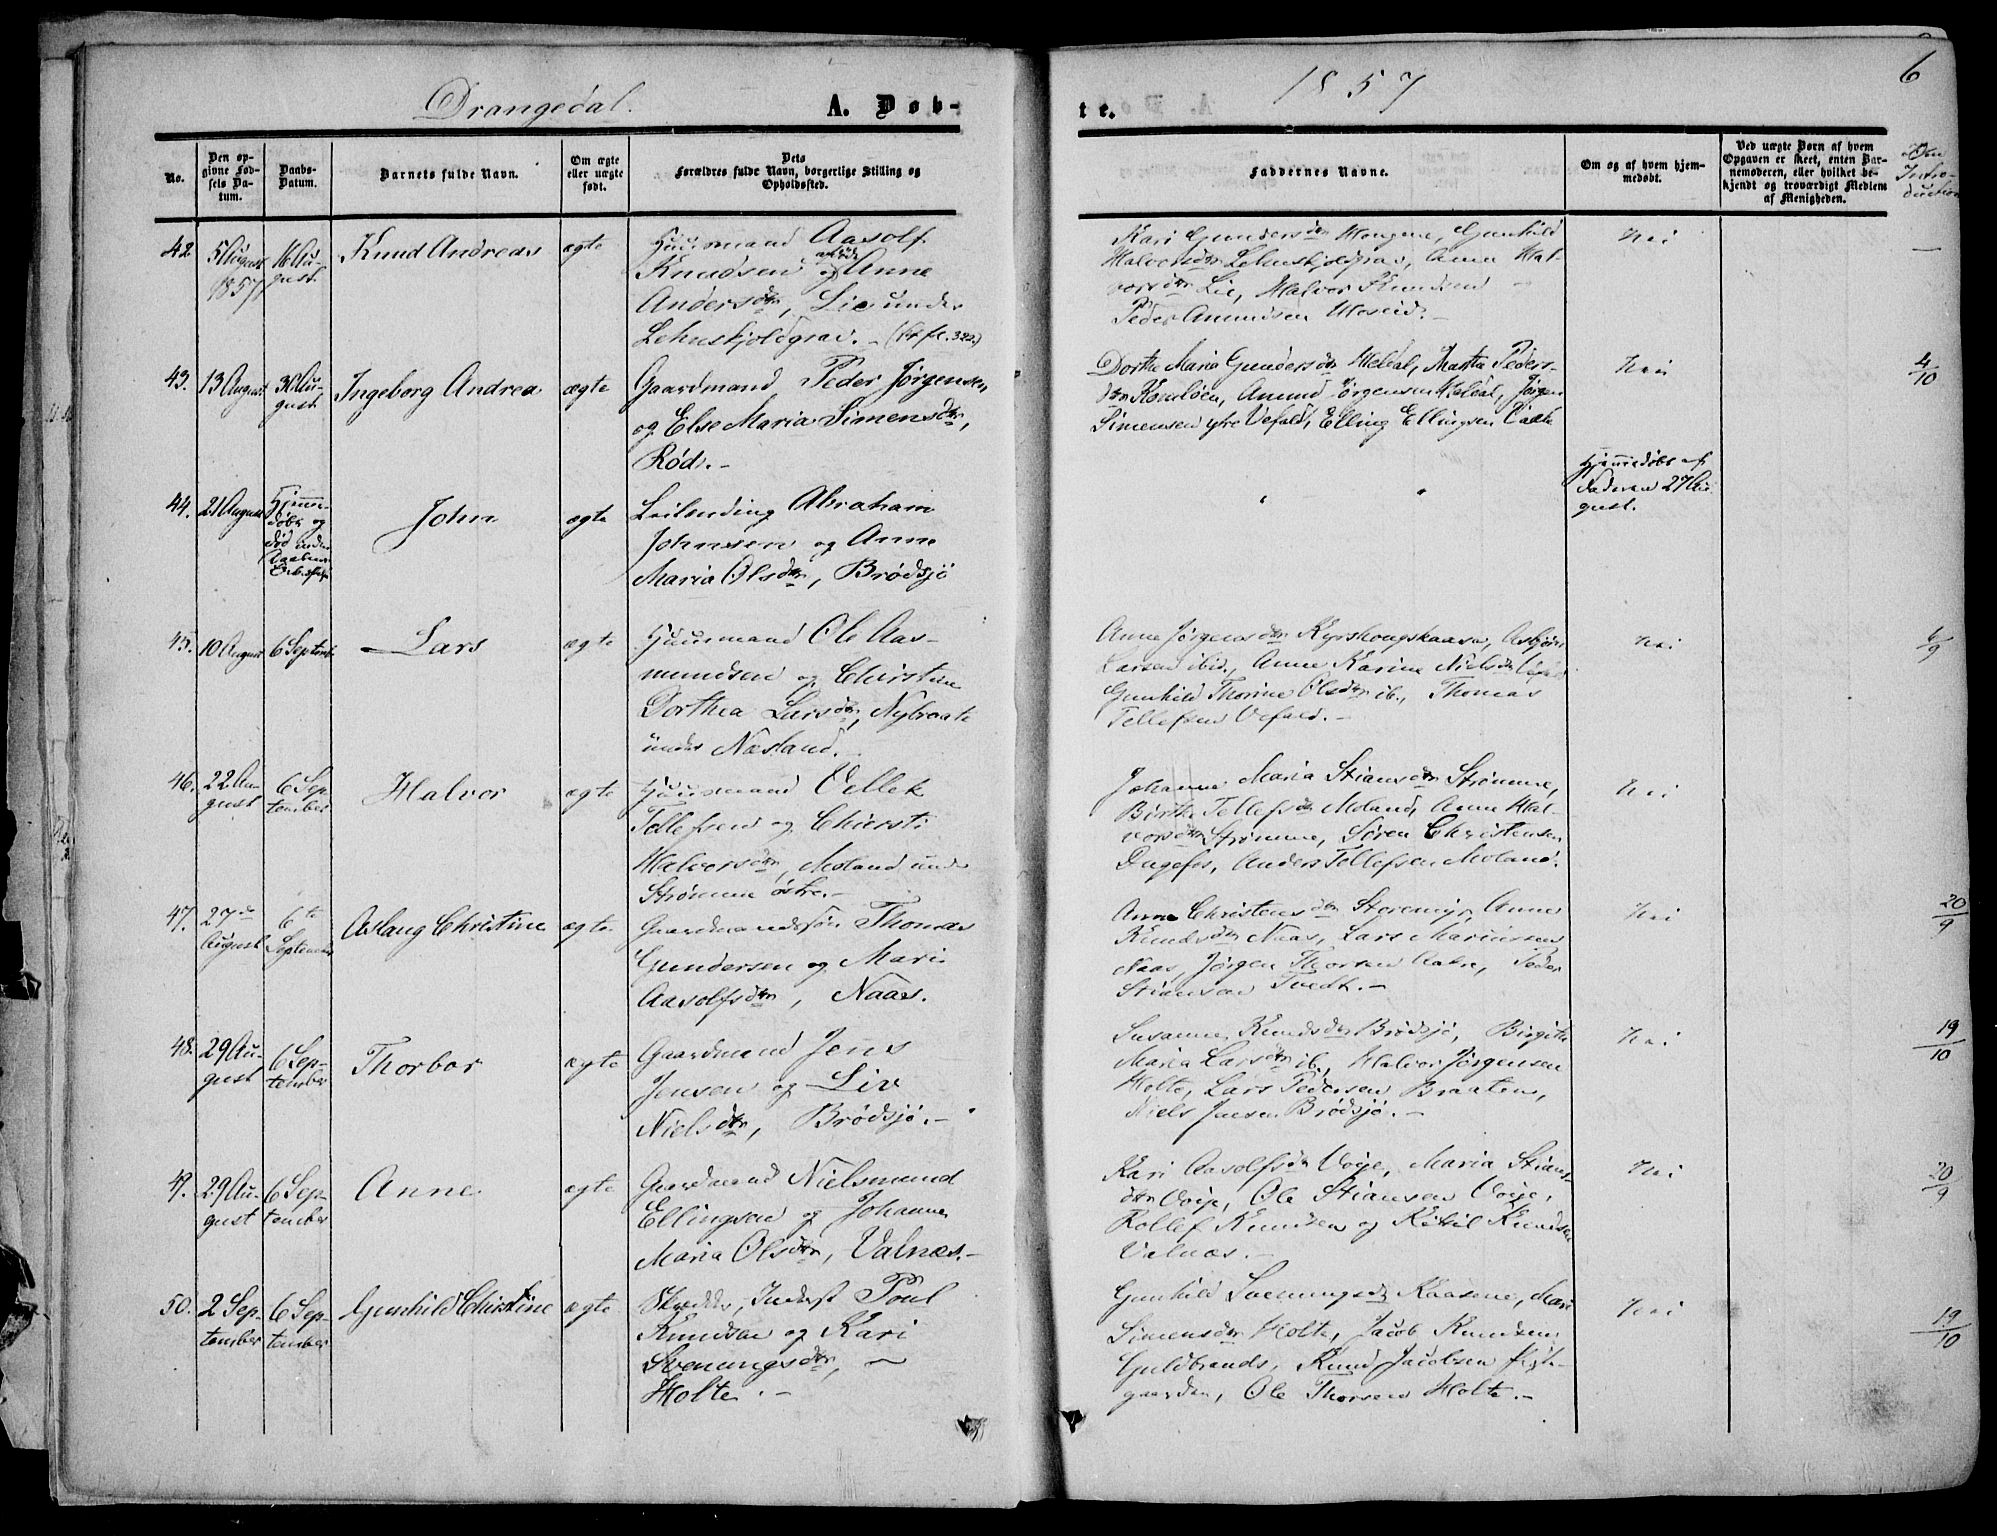 Drangedal.
A. Døb-
te.
1857
6
No.
Den op-
givne Fød-
sels Da-
tum.
Daabs-
Datum.
Barnets fulde Navn.
Om ægte
eller uægte
født.
Dets
Forældres fulde Navn, borgerlige Stilling og
Opholdssted.
Faddernes Navne.
Om og af hvem hjem-
medøbt.
Ved uægte Børn af hvem
Opgaven er skeet, enten Bar-
nemoderen, eller hvilket be-
kjendt og troværdigt Medlem
af Menigheden.
Om
Intro-
duction
42
5 August
1857
16 Au-
gust
Knud Andreas
ægte
Huusmand Aasolf
Knudsen og Anne
Andersdtr, Lie under
Lehnskjoldgrav. -
Kari Gundersdtr, Gunhild
Halvorsdtr Lehnskjoldgrav, Anne Hal-
vorsdtr Lie, Halvor Knudsen
Peder Amundsen
Nei
43.
13 August
30 Au-
gust
Ingeborg Andrea
ægte
Gaardmand Peder Jørgensen
og Else Maria Simensdtr,
Rød. -
Dorthe Maria Gundersdtr Heldal, Martha Peders-
dtr, Amund Jørgensen Heldal, Jørgen
Simensen ytre Vefald, Elling Ellingsen
Nei
4/10
44.
21 August
Hjemme-
døbt og
død
John
ægte
Leilending Abraham
Johnsen og Anne
Maria Olsdtr, Brødsjø
Hjemmedøbt af
Faderen 27 Au-
gust.
45.
10 August
6 Septemb.
Lars
ægte
Huusmand Ole Aas-
mundsen og Christine
Dorthea Larsdtr, Nybraate
under Næsland.
Anne Jørgensdtr, Asbjørn
Larsen ibid., Anne Karine Nielsdtr
Gunhild Thorine Olsdtr ib., Thomas
Tellefsen Vefald. -
Nei
6/9
46.
22 Au-
gust
6 Sep-
tember
Halvor
ægte
Huusmand Vellek
Tellefsen og Chirsti
Halvorsdtr, Moland under
Strømme østre. -
Johanne Maria Stiansdtr Strømme,
Birthe Tellefsdtr Moland, Anne Hal-
vorsdtr Strømme, Søren Christensen
Dugefos, Anders Tellefsen Moland.
Nei
47.
27de
August
6te
September
Aslaug Christine
ægte
Gaardmandssøn Thomas
Gundersen og Mari
Aasolfsdtr, Naaes.
Anne Christensdtr Storemyr, Anne
Knudsdtr Naas, Lars Mariussen
Naas, Jørgen Thorsen, Peder
Stiansen Tvedt. -
Nei
20/9
48.
29 Au-
gust
6 Sep-
tember
Thorbor
ægte
Gaardmand Jens
Jensen og Liv
Nielsdtr, Brødsjø. -
Susanne Knudsdtr Brødsjø, Birgithe
Maria Larsdtr ib., Halvor Jørgensen
Holte, Lars Pedersen Braaten,
Niels Jensen Brødsjø. -
Nei
19/10
49.
29 Au-
gust
6 Sep-
tember
Anne
ægte
Gaardmand Nielsmund
Ellingsen og Johanne
Maria Olsdtr, Valnæs. -
Kari Aasolfsdtr Voje, Maria Stians-
dtr Voje, Ole Stiansen Voje,
Rollef Knudsen og Kittil Knudsen
Valnæs. -
Nei
20/9
50.
2 Sep-
tember
6 Sep-
tember
Gunhild Christine
ægte
Skrædder, Inderst Poul
Knudsen og Kari
Sveningsdtr,
Holte. -
Gunhild Sveningsdtr Kaasene, Mari
Simensdtr Holte, Jacob Knudsen
Guldbrands, Knud Jacobsen
Ole Thorsen Holte. -
Nei
19/10